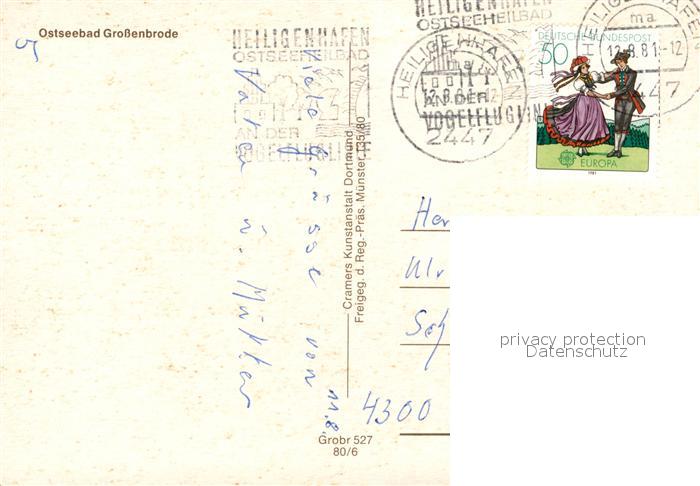 Ostseebad Großenbrode
HEILIGENHAFEN
OSTSEEHEILBAD
AN DER
VOGELFLUGLINIE
HEILIGENHAFEN
OSTSEEHEILBAD
AN DER
VOGELFLUGLIN
HEILIGENHAFEN
ma
12.8.81-12
2447
HEILIGENHAFEN
ma
12.8.81-12
2447
DEUTSCHE BUNDESPOST
50
EUROPA
1981
Viele Grüsse von
Vater u. Mutter
11.8.
Cramers Kunstanstalt Dortmund
Freigeg. d. Reg.-Präs. Münster 135/80
4300
Grobr 527
80/6
privacy protection
Datenschutz